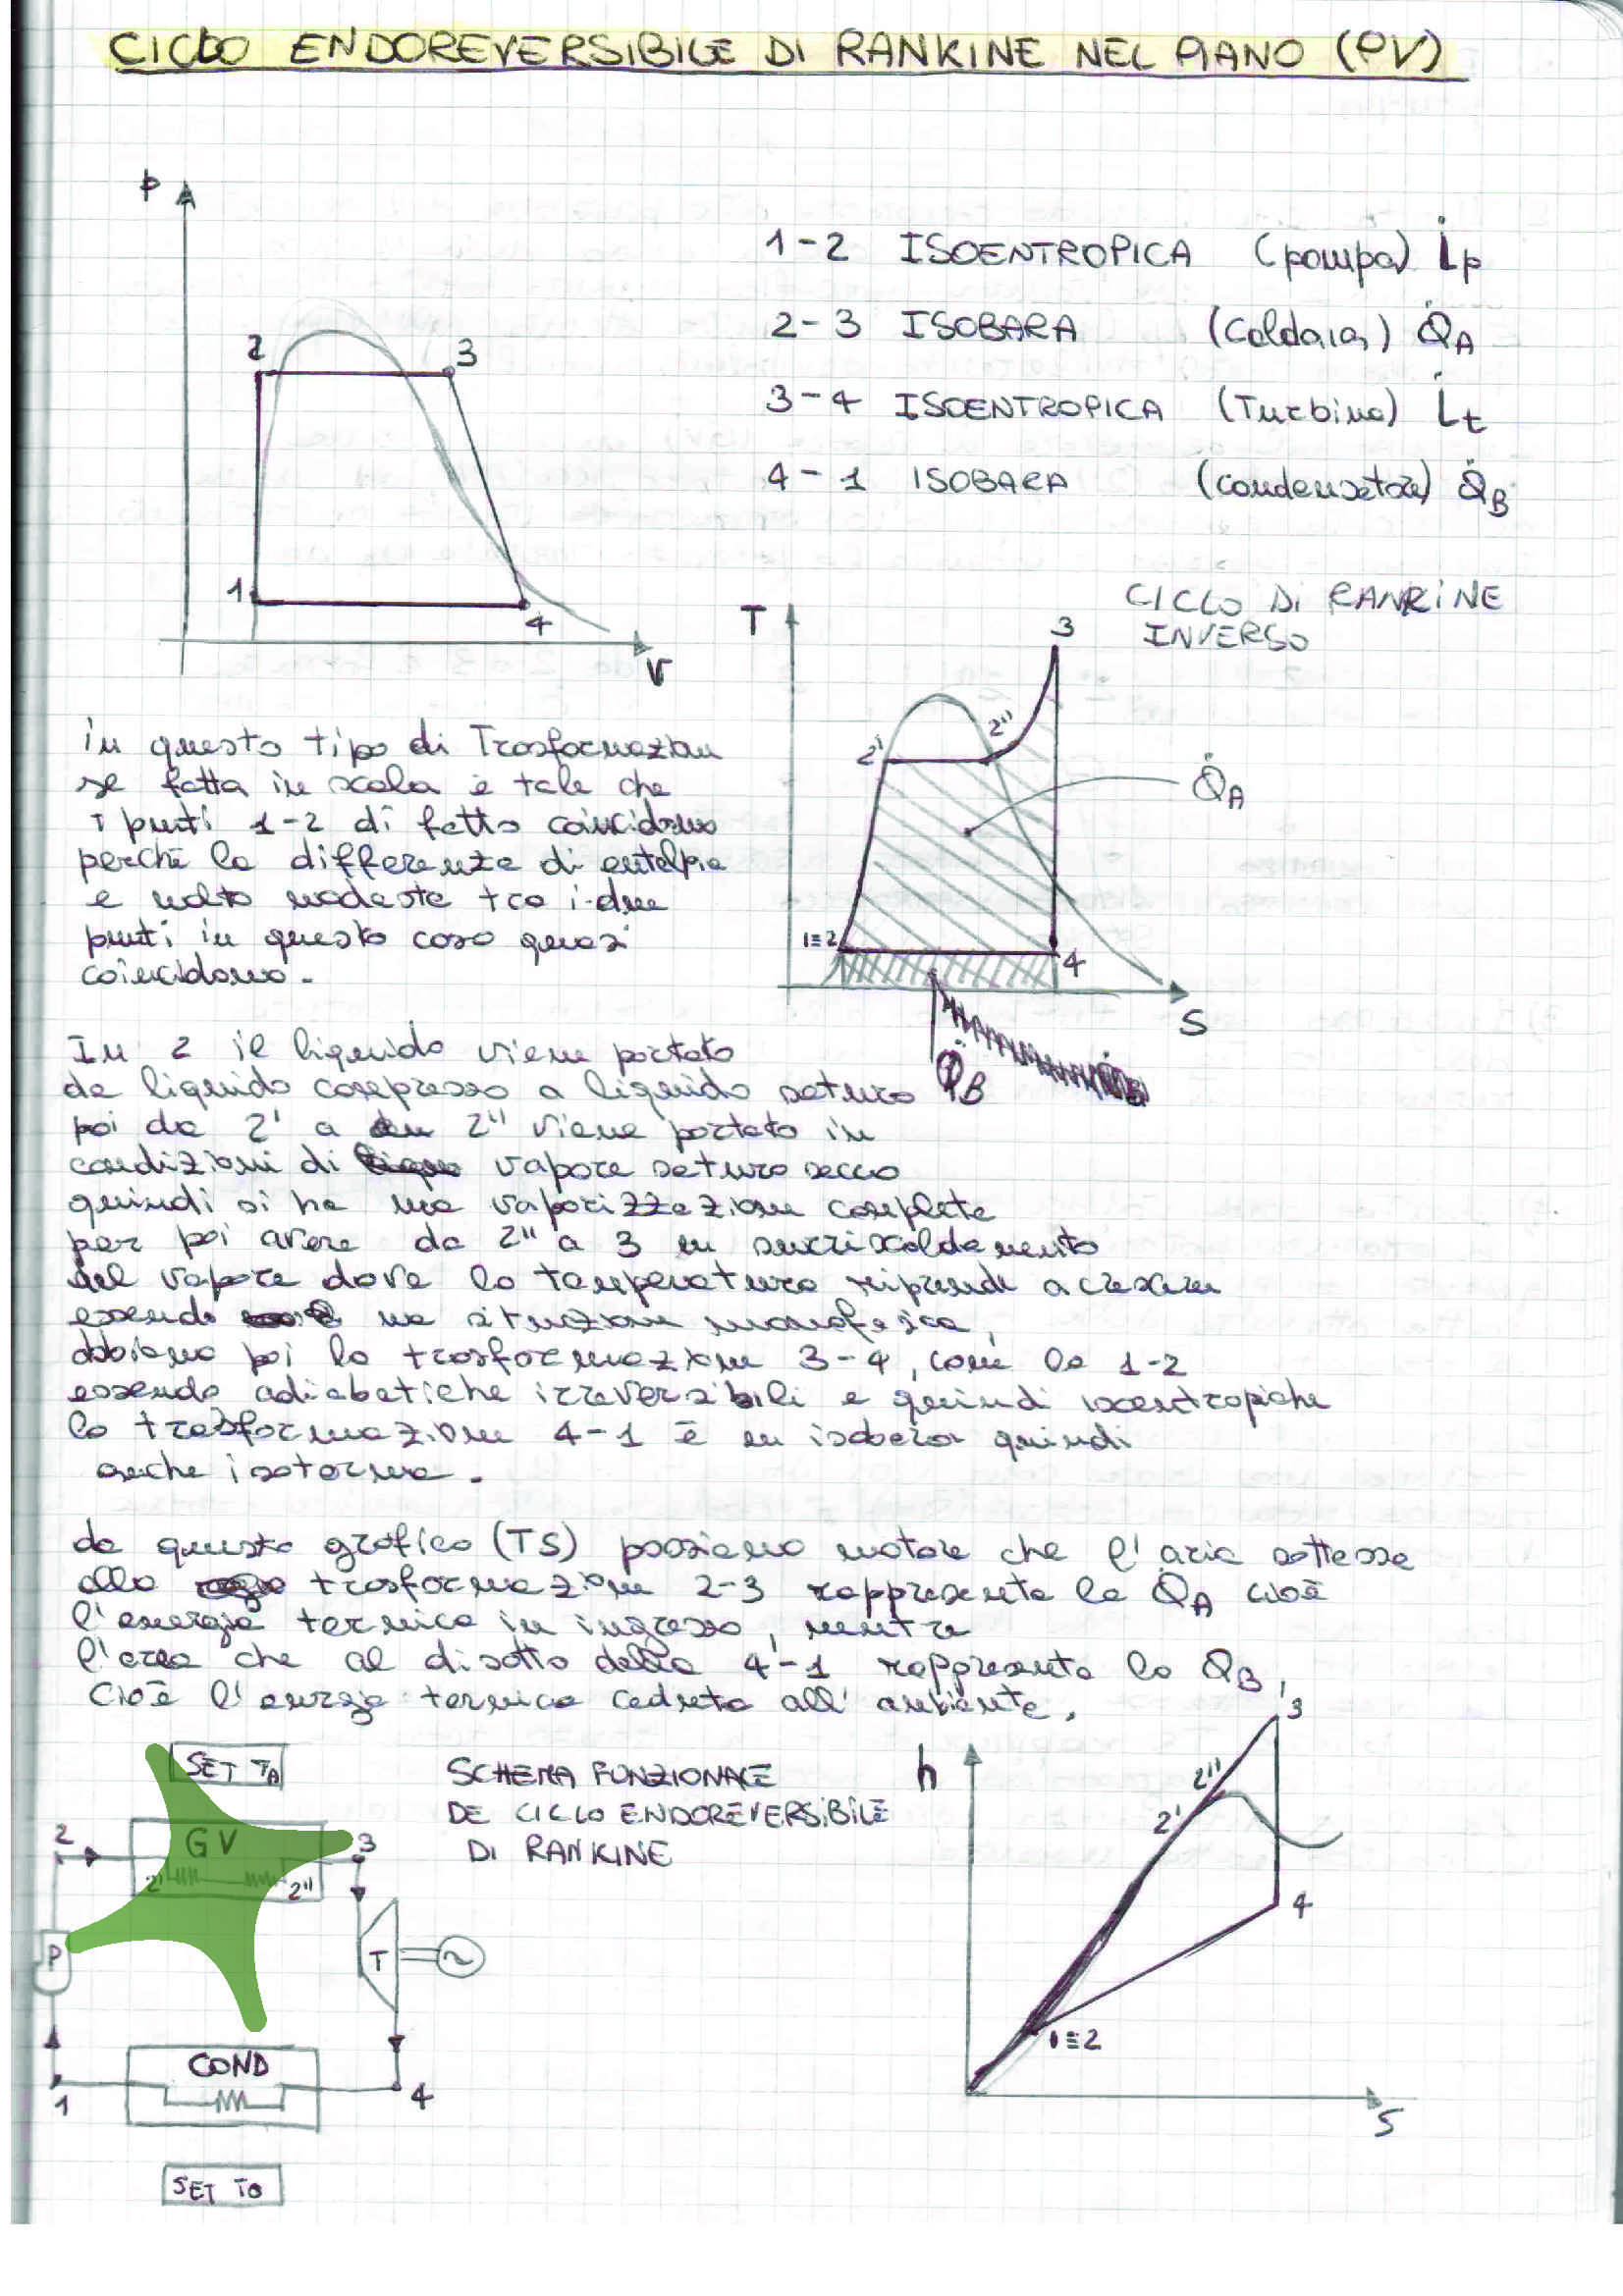 CICLO ENDOREVERSIBILE DI RANKINE NEL PIANO (PV)
P
1-2 ISOENTROPICA (pompa) L̇p
2-3 ISOBARA (Caldaia) Q̇A
3-4 ISOENTROPICA (Turbina) L̇t
4-1 ISOBARA (condensatore) Q̇B
2
3
1
4
V
CICLO DI RANKINE
INVERSO
T
3
2'
2"
Q̇A
1≡2
4
S
Q̇B
in questo tipo di Trasformazion
se fatta in scala è tale che
i punti 1-2 di fatto coincidono
perchè la differenza di entalpia
e molto modesta tra i due
punti in questo caso quasi
coincidono.
In 2 il liquido viene portato
da liquido compresso a liquido saturo
poi da 2' a 2" viene portato in
condizioni di vapore saturo secco
quindi si ha una vaporizzazione completa
per poi avere da 2" a 3 un surriscaldamento
del vapore dove la temperatura riprende a crescere
essendo una situazione monofasica,
abbiamo poi la trasformazione 3-4, come la 1-2
essendo adiabatiche irreversibili e quindi isoentropiche
la trasformazione 4-1 è un isobara quindi
anche isoterma.
da questo grafico (TS) possiamo notare che l'aria sottesa
alla trasformazione 2-3 rappresenta la Q̇A cioè
l'energia termica in ingresso, mentre
l'area che al disotto della 4-1 rappresenta la Q̇B,
cioè l'energia termica ceduta all'ambiente.
SET TA
SCHEMA FUNZIONALE
DE CICLO ENDOREVERSIBILE
DI RANKINE
2
GV
3
2'
2"
P
T
~
COND
1
4
SET T0
h
3
2"
2'
4
1≡2
S